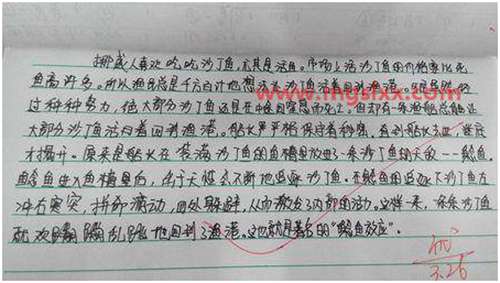 挪威人喜欢吃沙丁鱼,尤其是活鱼。市场上活沙丁鱼的价格要比死
鱼高许多。所以渔民总是千方百计地想
过种种努力,但大部分沙丁鱼还是在中途因窒息而死亡。但却有一条渔船总能让
大部分沙丁鱼活着回到渔港。船长严格保守着秘密,直到船长
才揭开。原来是船长在装满沙丁鱼的鱼槽里放进一条沙丁鱼的天敌——鲶鱼。
鲶鱼进入鱼槽里后,由于天性会不断地追逐沙丁鱼。在鲶鱼的追逐下沙丁鱼左
冲右突,拼命游动,四处躲避,从而激发了内部的活力。这样一来,一条条沙丁鱼
就欢蹦乱跳地回到了渔港。这也就是著名的“鲶鱼效应”。
www.mgsfxx.com
优
3.26